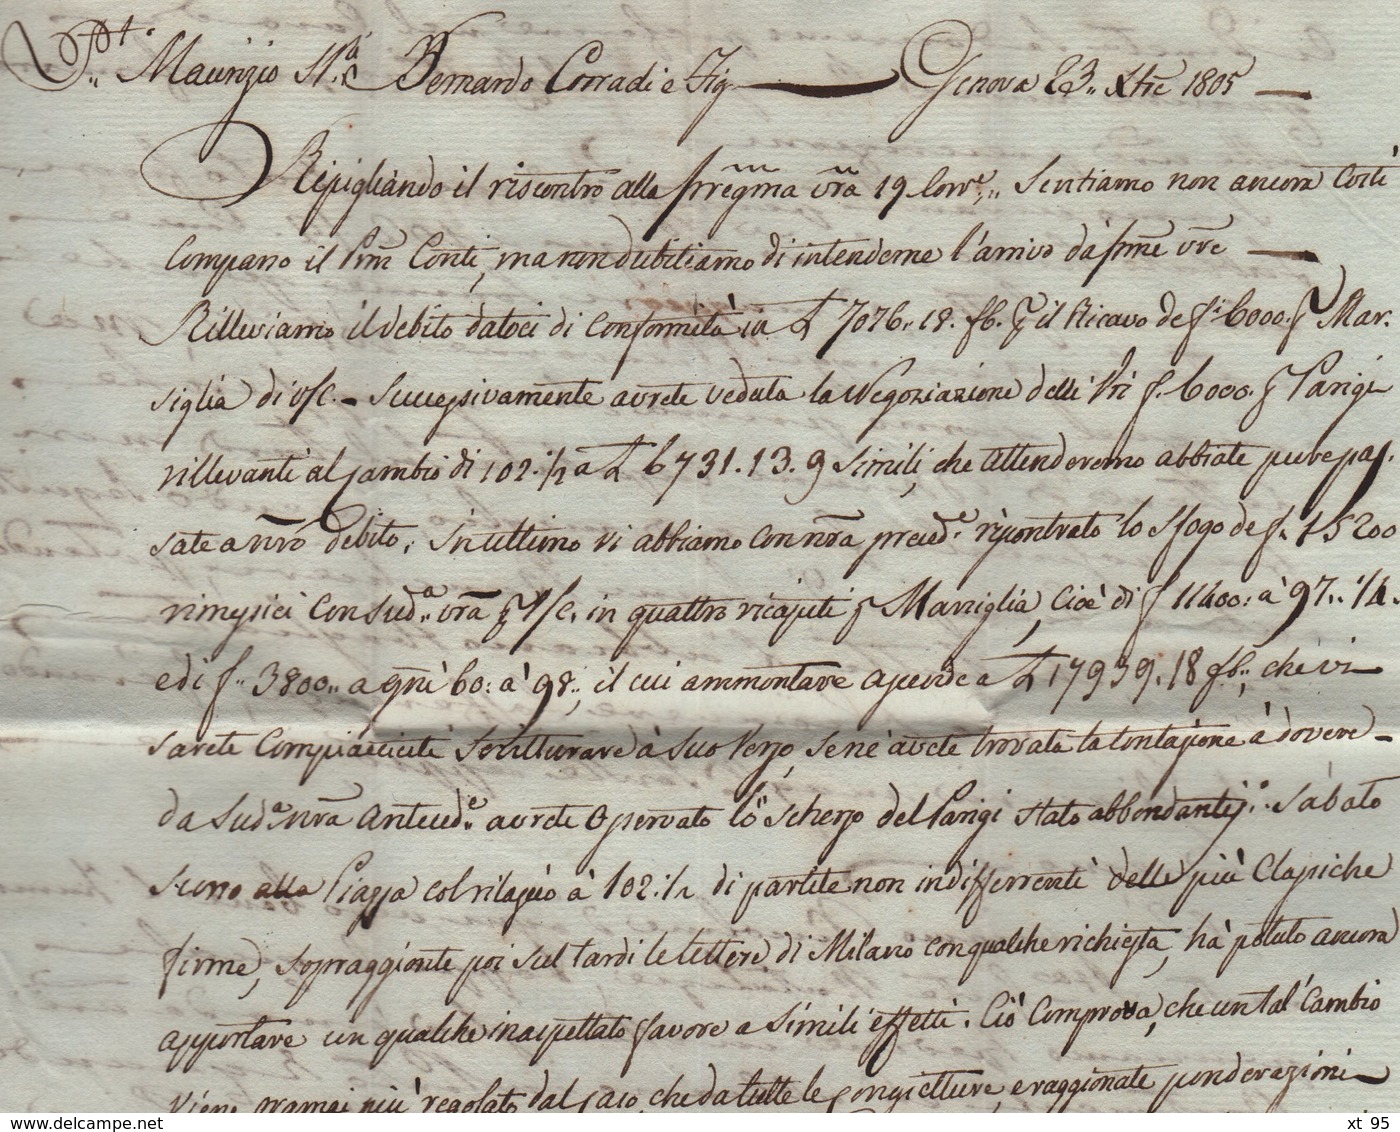 Maurizio Bernardo Corradi e Fig. Genova 23.. Xbre 1805
Ripigliando il riscontro alla pregma vra 19 Corre.,, Sentiamo non ancora Costì
Comparso il Conti, ma non dubitiamo di intenderne l'arrivo da pme vre
Rilleviamo il debito datoci di Conformità in £ 7076.. 18. fb. p il Ricavo de f. 6000. p Mar-
siglia di v/c. - Successivamente avrete veduta la Negoziazione delli Pri f. 6000. p Parigi
rillevanti al Cambio di 102. 1/2 a £ 6731. 13. 9 simili, che attenderemo abbiate pure pas-
sate a nro debito. In ultimo vi abbiamo Con nra preced.e riscontrato lo Sfogo de f. 15200
rimessici Con sud.a vra p v/c. in quattro ricapiti p Marsiglia, Cioè di f 11400: à 97.. 1/4.
e di f.. 3800.. a gni 60: à 98.., il cui ammontare ascende a £ 17939. 18 fb.; che vi
sarete Compiacciuti scritturare à suo Verso, se nè avete trovata la Contazione à dovere -
da Sud.a nra Anteced.e avrete Osservato lo Scherzo del Parigi stato abbondantiss.o. Sabato
scorso alla Piazza col rilascio à 102. 1/2 di partite non indifferenti delle più Classiche
firme, sopraggionte poi sul tardi le lettere di Milano con qualche richiesta, hà potuto ancora
apportare un qualche inaspettato favore a Simili effetti. Ciò Comprova, che un tal Cambio
viene oramai più regolato dal Caso, che da tutte le Congietture, e raggionate ponderazioni
www.delcampe.net
xt_95